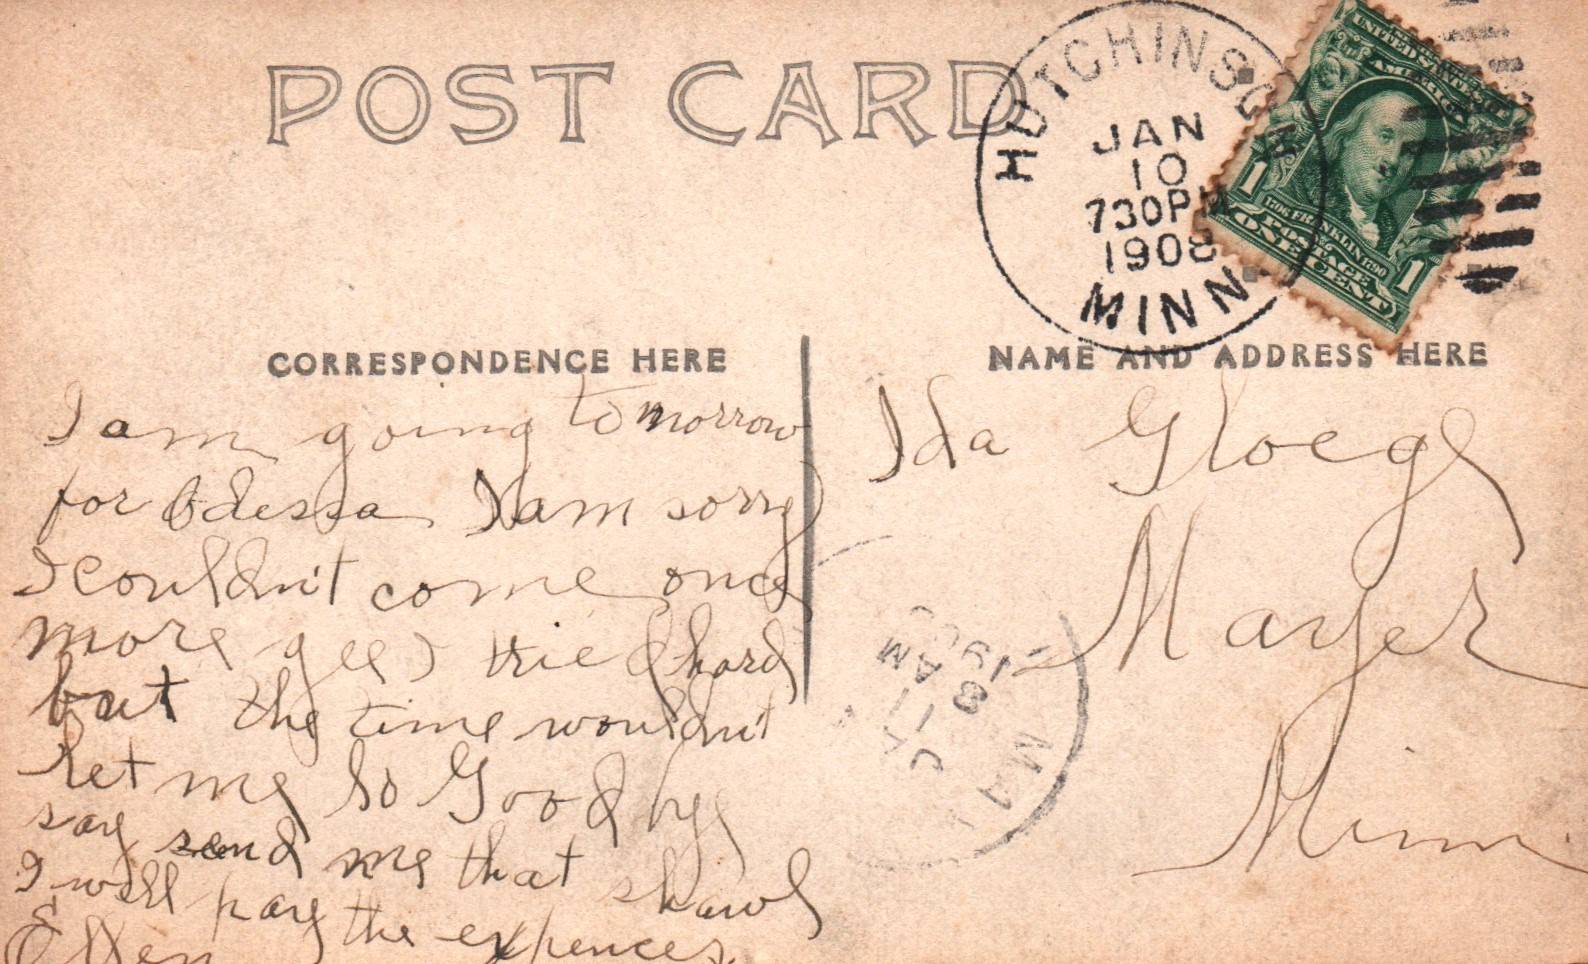 POST CARD
HUTCHINSON
JAN
10
730PM
1908
MINN.
UNITED STATES OF
AMERICA
1
1706 FRANKLIN 1790
POSTAGE
ONE CENT
1
CORRESPONDENCE HERE
NAME AND ADDRESS HERE
I am going tomorrow
for Odessa I am sorry
I couldn't come once
more gee I tried hard
but the time wouldn't
let me so Good bye
say send me that shawl
I will pay the expences.
Ellen
Ida Gloege
Mayer
Minn
AM